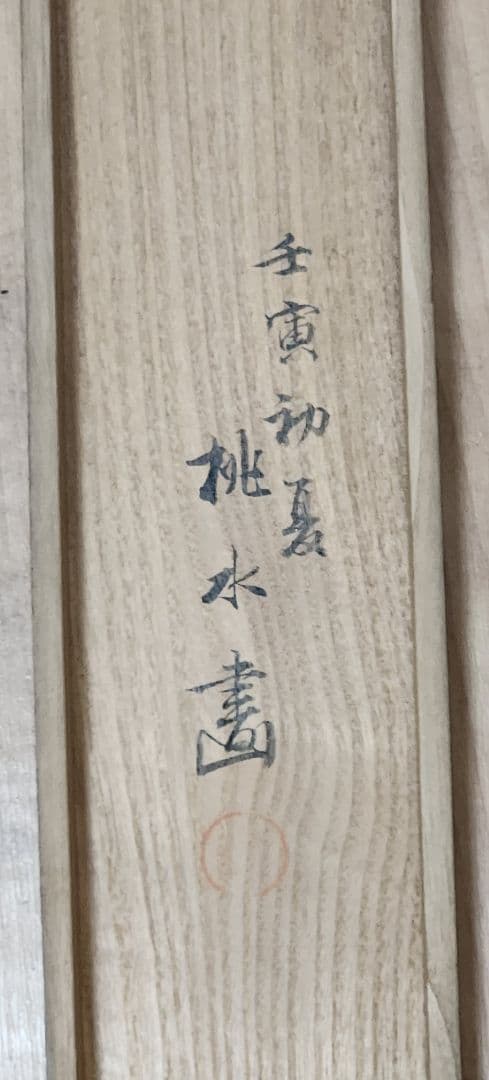 壬寅初夏
桃水畫